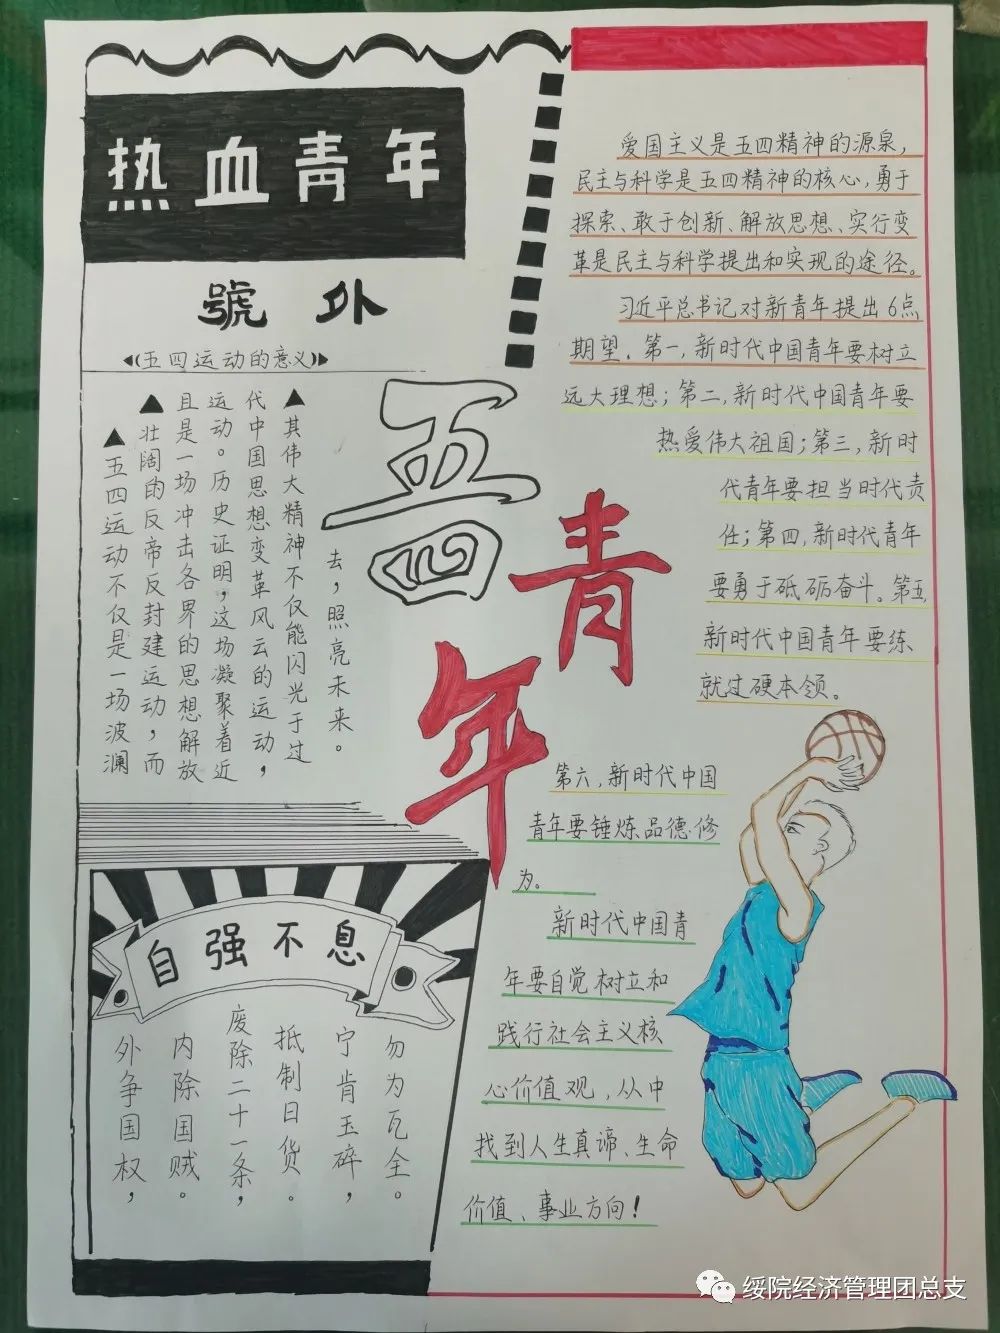 热血青年
號外
(五四运动的意义)
▲五四运动不仅是一场波澜
▲壮阔的反帝反封建运动，而
且是一场冲击各界的思想解放
运动。历史证明，这场凝聚着近
代中国思想变革风云的运动，
▲其伟大精神不仅能闪光于过
去，照亮未来。
五四
青年
自强不息
外争国权，
内除国贼。
废除二十一条，
抵制日货。
宁肯玉碎，
勿为瓦全。
爱国主义是五四精神的源泉，
民主与科学是五四精神的核心，勇于
探索、敢于创新、解放思想、实行变
革是民主与科学提出和实现的途径。
习近平总书记对新青年提出6点
期望。第一，新时代中国青年要树立
远大理想；第二，新时代中国青年要
热爱伟大祖国；第三，新时
代青年要担当时代责
任；第四，新时代青年
要勇于砥砺奋斗。第五，
新时代中国青年要练
就过硬本领。
第六，新时代中国
青年要锤炼品德修
为。
新时代中国青
年要自觉树立和
践行社会主义核
心价值观，从中
找到人生真谛、生命
价值、事业方向！
绥院经济管理团总支